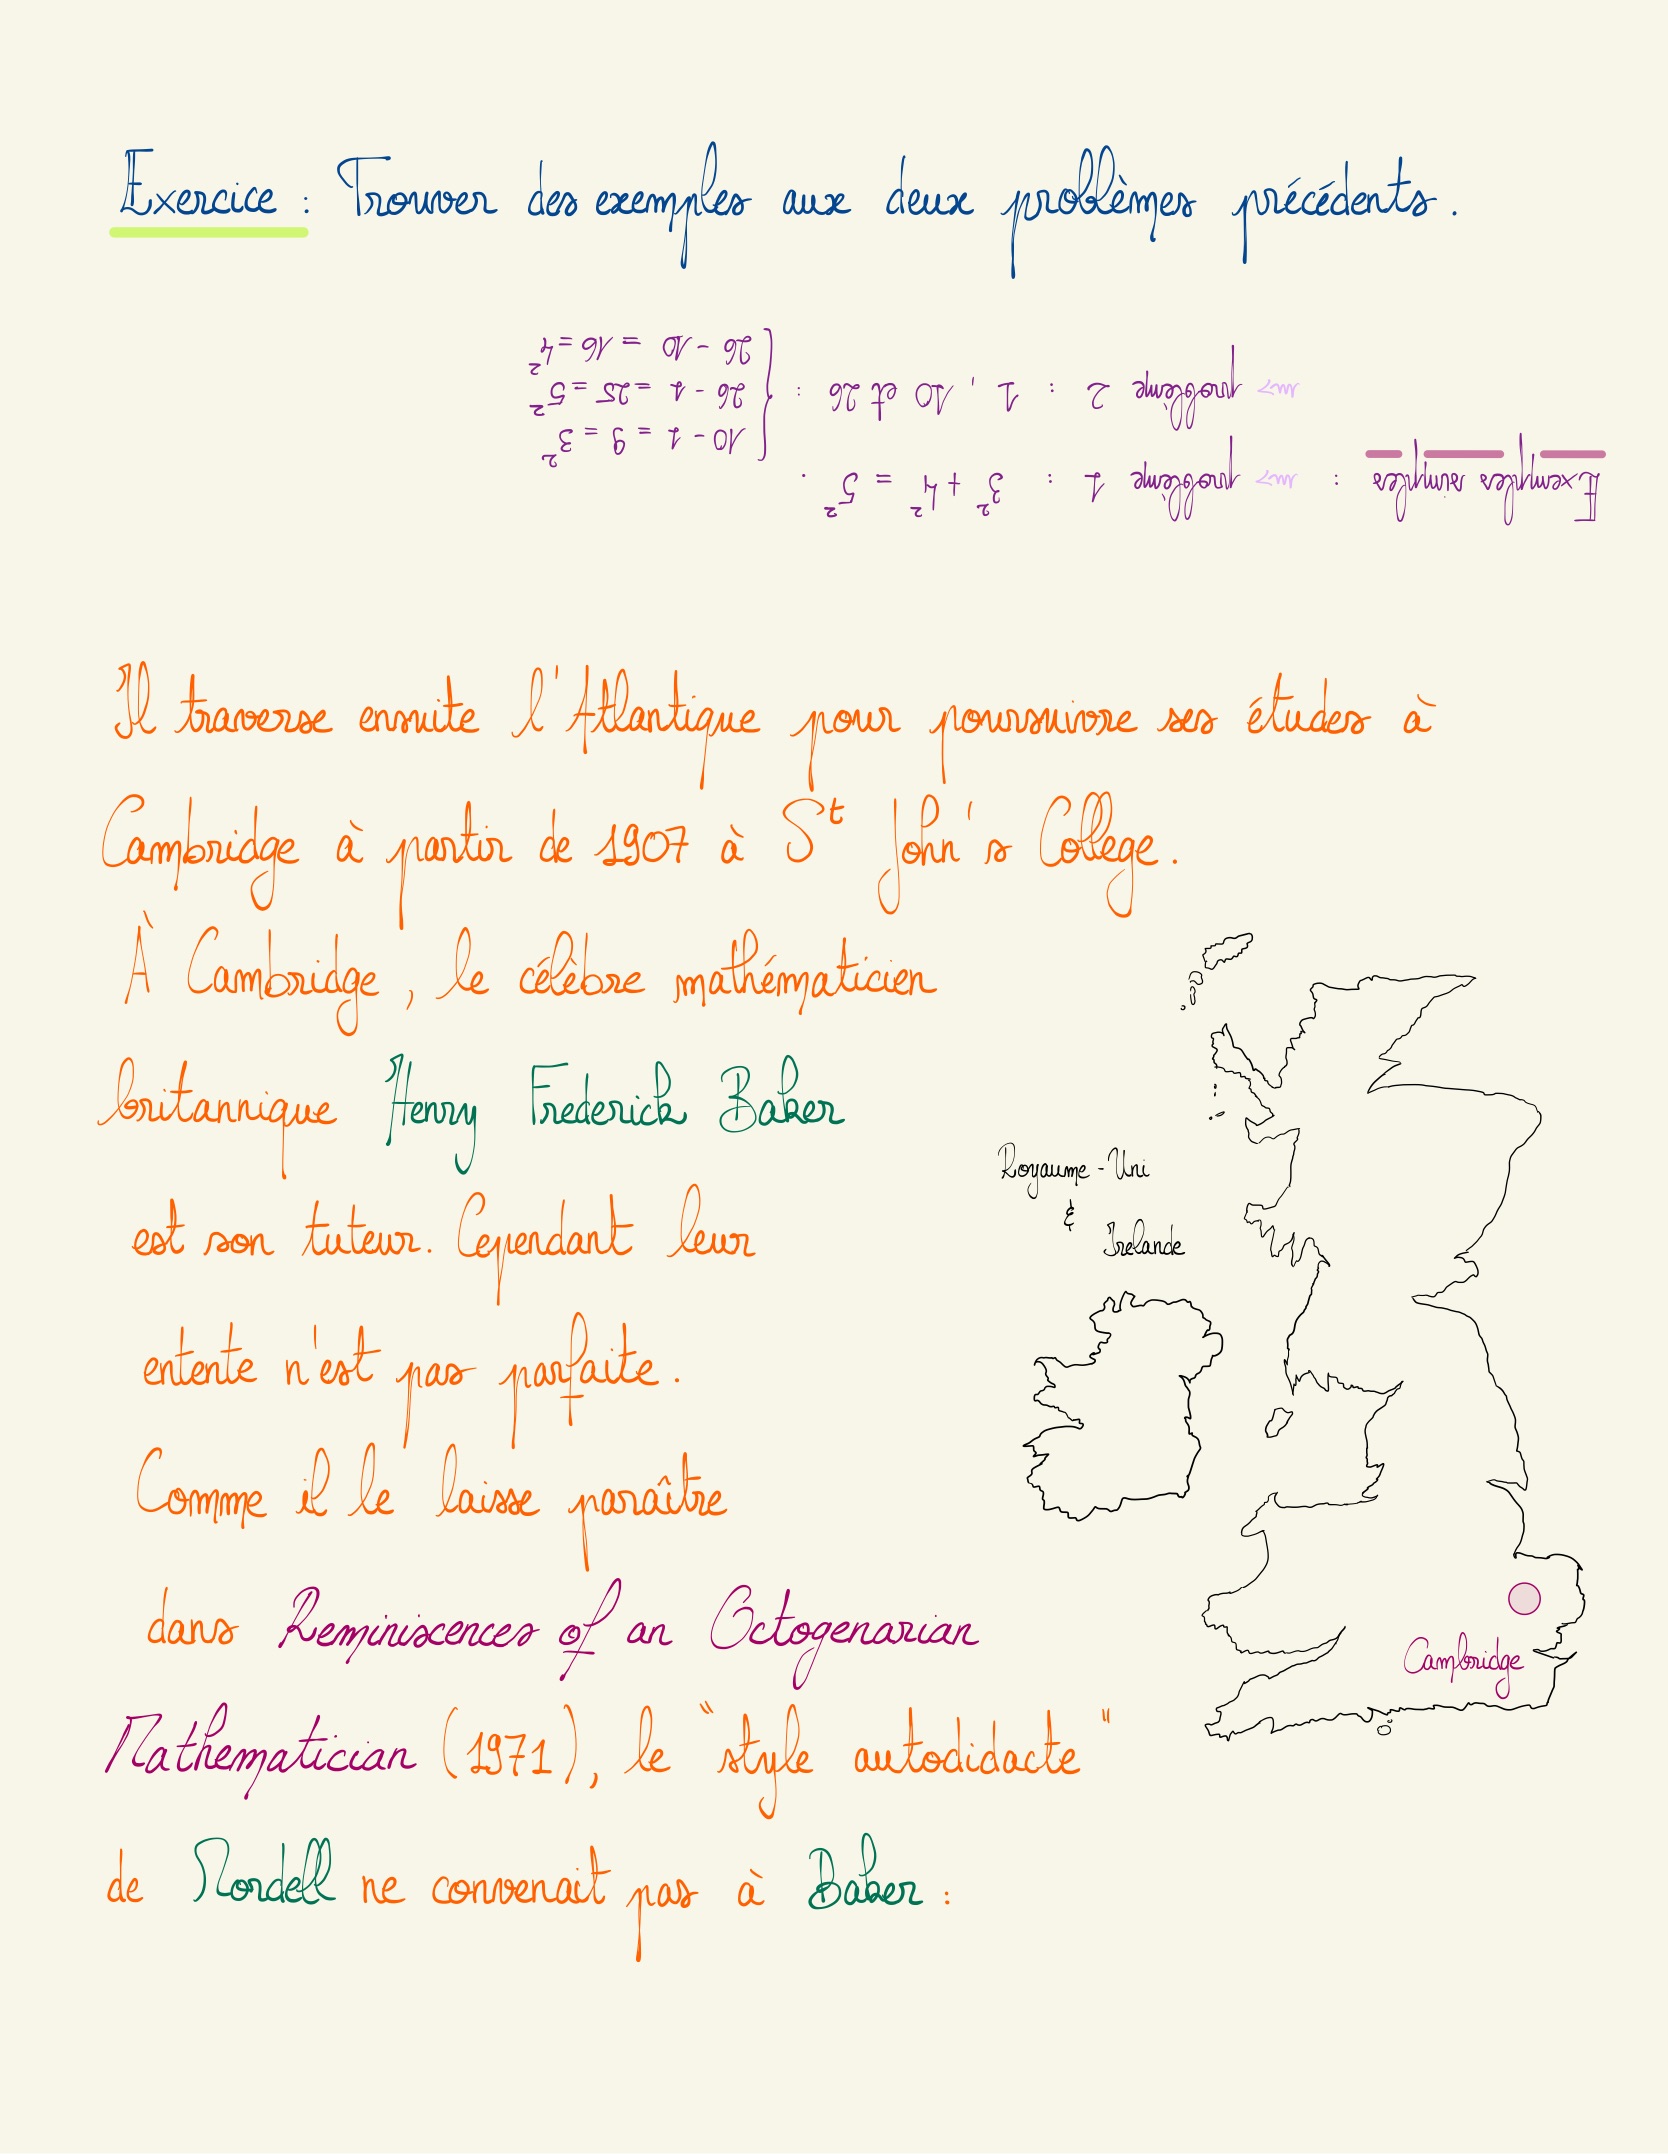 Exercice : Trouver des exemples aux deux problèmes précédents.
Exemples simples : problème 1 : 3² + 4² = 5².
problème 2 : 1, 10 et 26 :
10 - 1 = 9 = 3²
26 - 1 = 25 = 5²
26 - 10 = 16 = 4²
Il traverse ensuite l'Atlantique pour poursuivre ses études à
Cambridge à partir de 1907 à Sᵗ John's College.
À Cambridge, le célèbre mathématicien
britannique Henry Frederick Baker
est son tuteur. Cependant leur
entente n'est pas parfaite.
Comme il le laisse paraître
dans Reminiscences of an Octogenarian
Mathematician (1971), le "style autodidacte"
de Mordell ne convenait pas à Baker :
Royaume-Uni
&
Irelande
Cambridge